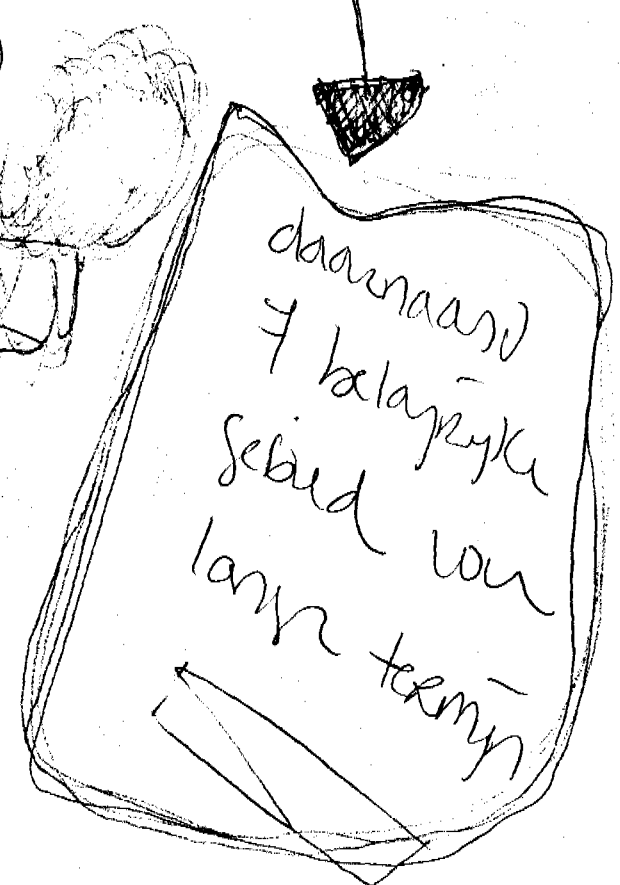 daarnaast
7 belangrijke
gebied
lange termijn